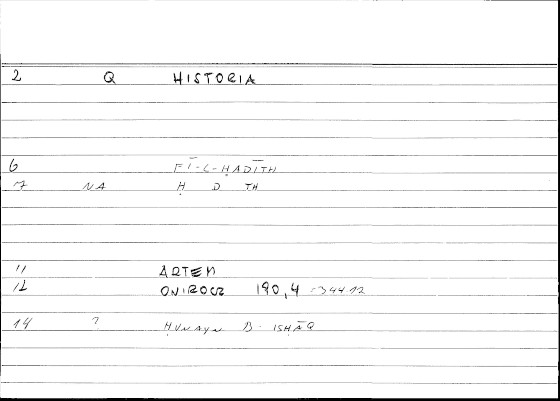 2 Q HISTORIA
6 FĪ-L-ḤADĪTH
7 NA Ḥ D TH
11 ARTEM
12 ONIROCR 190,4 =344.12
14 ? ḤUNAYN B- ISḤĀQ